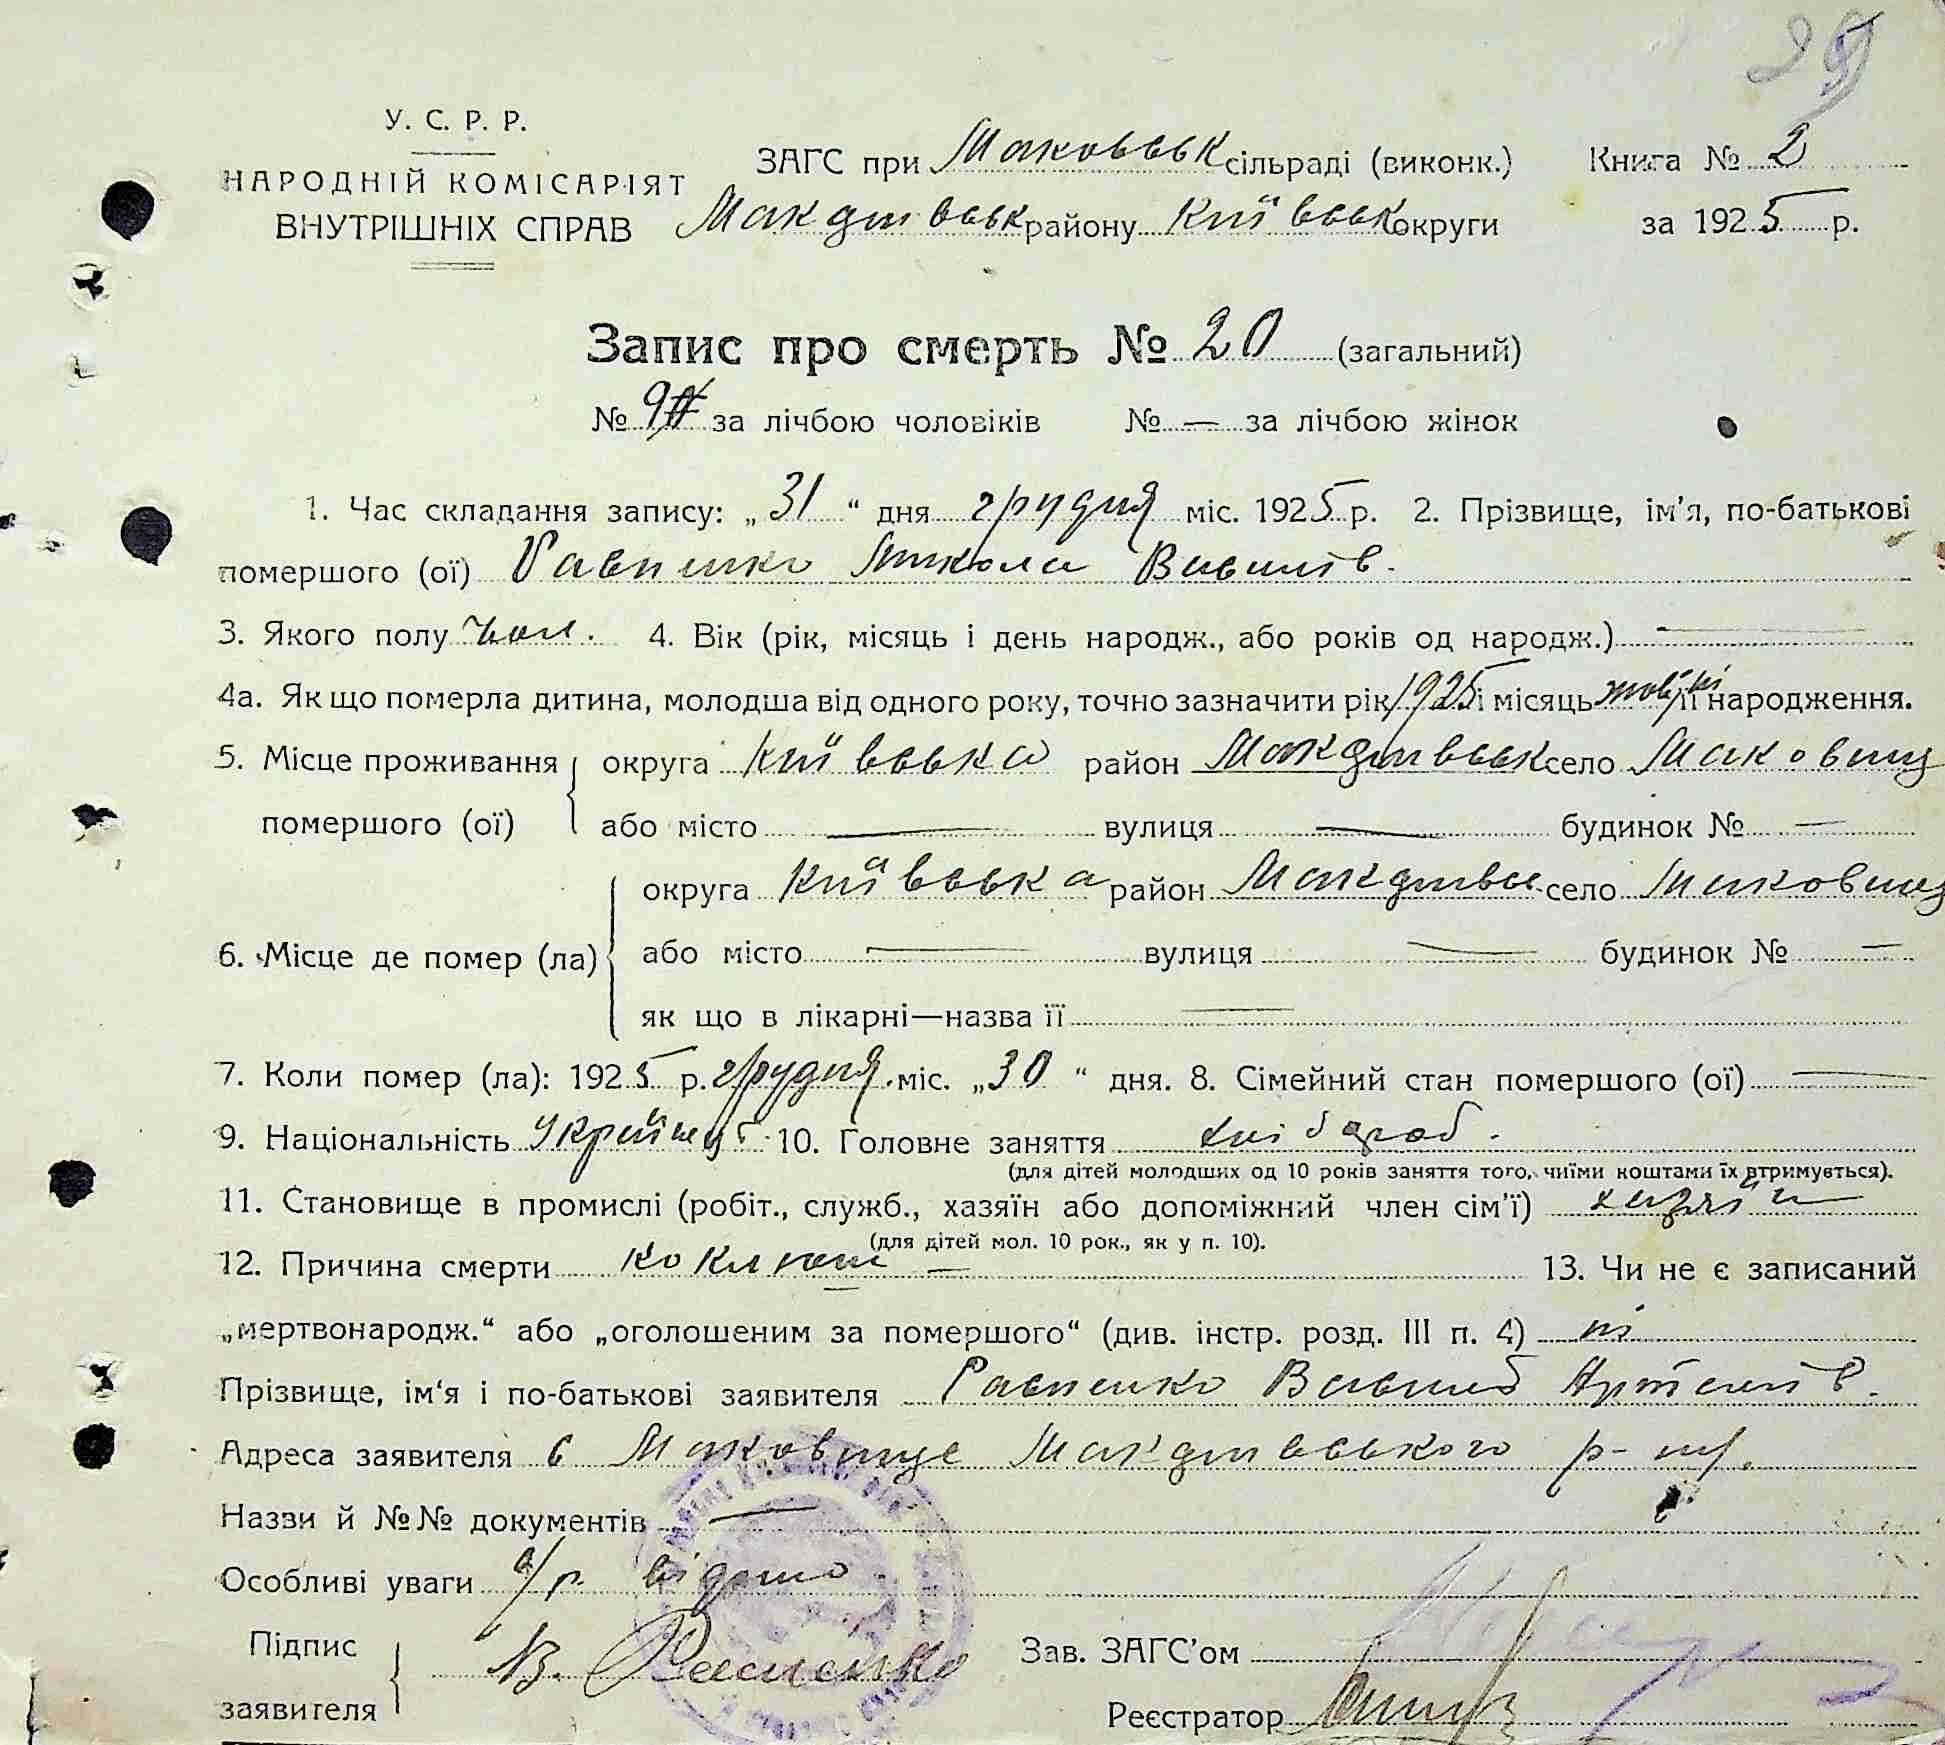 29
У. С. Р. Р.
НАРОДНІЙ КОМІСАРІЯТ
ВНУТРІШНІХ СПРАВ
ЗАГС при Маковськ сільраді (виконк.) Книга № 2
Макарівськ району Київськ округи за 1925 р.
Запис про смерть № 20 (загальний)
№ 9 за лічбою чоловіків № — за лічбою жінок
1. Час складання запису: „31“ дня грудня міс. 1925 р. 2. Прізвище, ім'я, по-батькові
помершого (ої) Равненко Микола Вавилів.
3. Якого полу чол. 4. Вік (рік, місяць і день народж., або років од народж.) —
4а. Як що померла дитина, молодша від одного року, точно зазначити рік 1925 і місяць її народження.
5. Місце проживання помершого (ої) округа Київська район Макарівськ село Маковищ
або місто — вулиця — будинок № —
6. Місце де помер (ла) округа Київська район Макарівсь село Маковищ
або місто — вулиця — будинок № —
як що в лікарні—назва її —
7. Коли помер (ла): 1925 р. грудня міс. „30“ дня. 8. Сімейний стан помершого (ої) —
9. Національність Україець 10. Головне заняття хлібороб.
(для дітей молодших од 10 років заняття того, чиїми коштами їх втримується).
11. Становище в промислі (робіт., служб., хазяїн або допоміжний член сім'ї) хазяїн
(для дітей мол. 10 рок., як у п. 10).
12. Причина смерти коклюш — 13. Чи не є записаний
„мертвонародж.“ або „оголошеним за помершого“ (див. інстр. розд. III п. 4) ні
Прізвище, ім'я і по-батькові заявителя Равненко Вавило Артемів.
Адреса заявителя с Маковище Макарівського р-ну.
Назви й №№ документів —
Особливі уваги відомо
Підпис заявителя В. Зав. ЗАГС'ом
Реєстратор